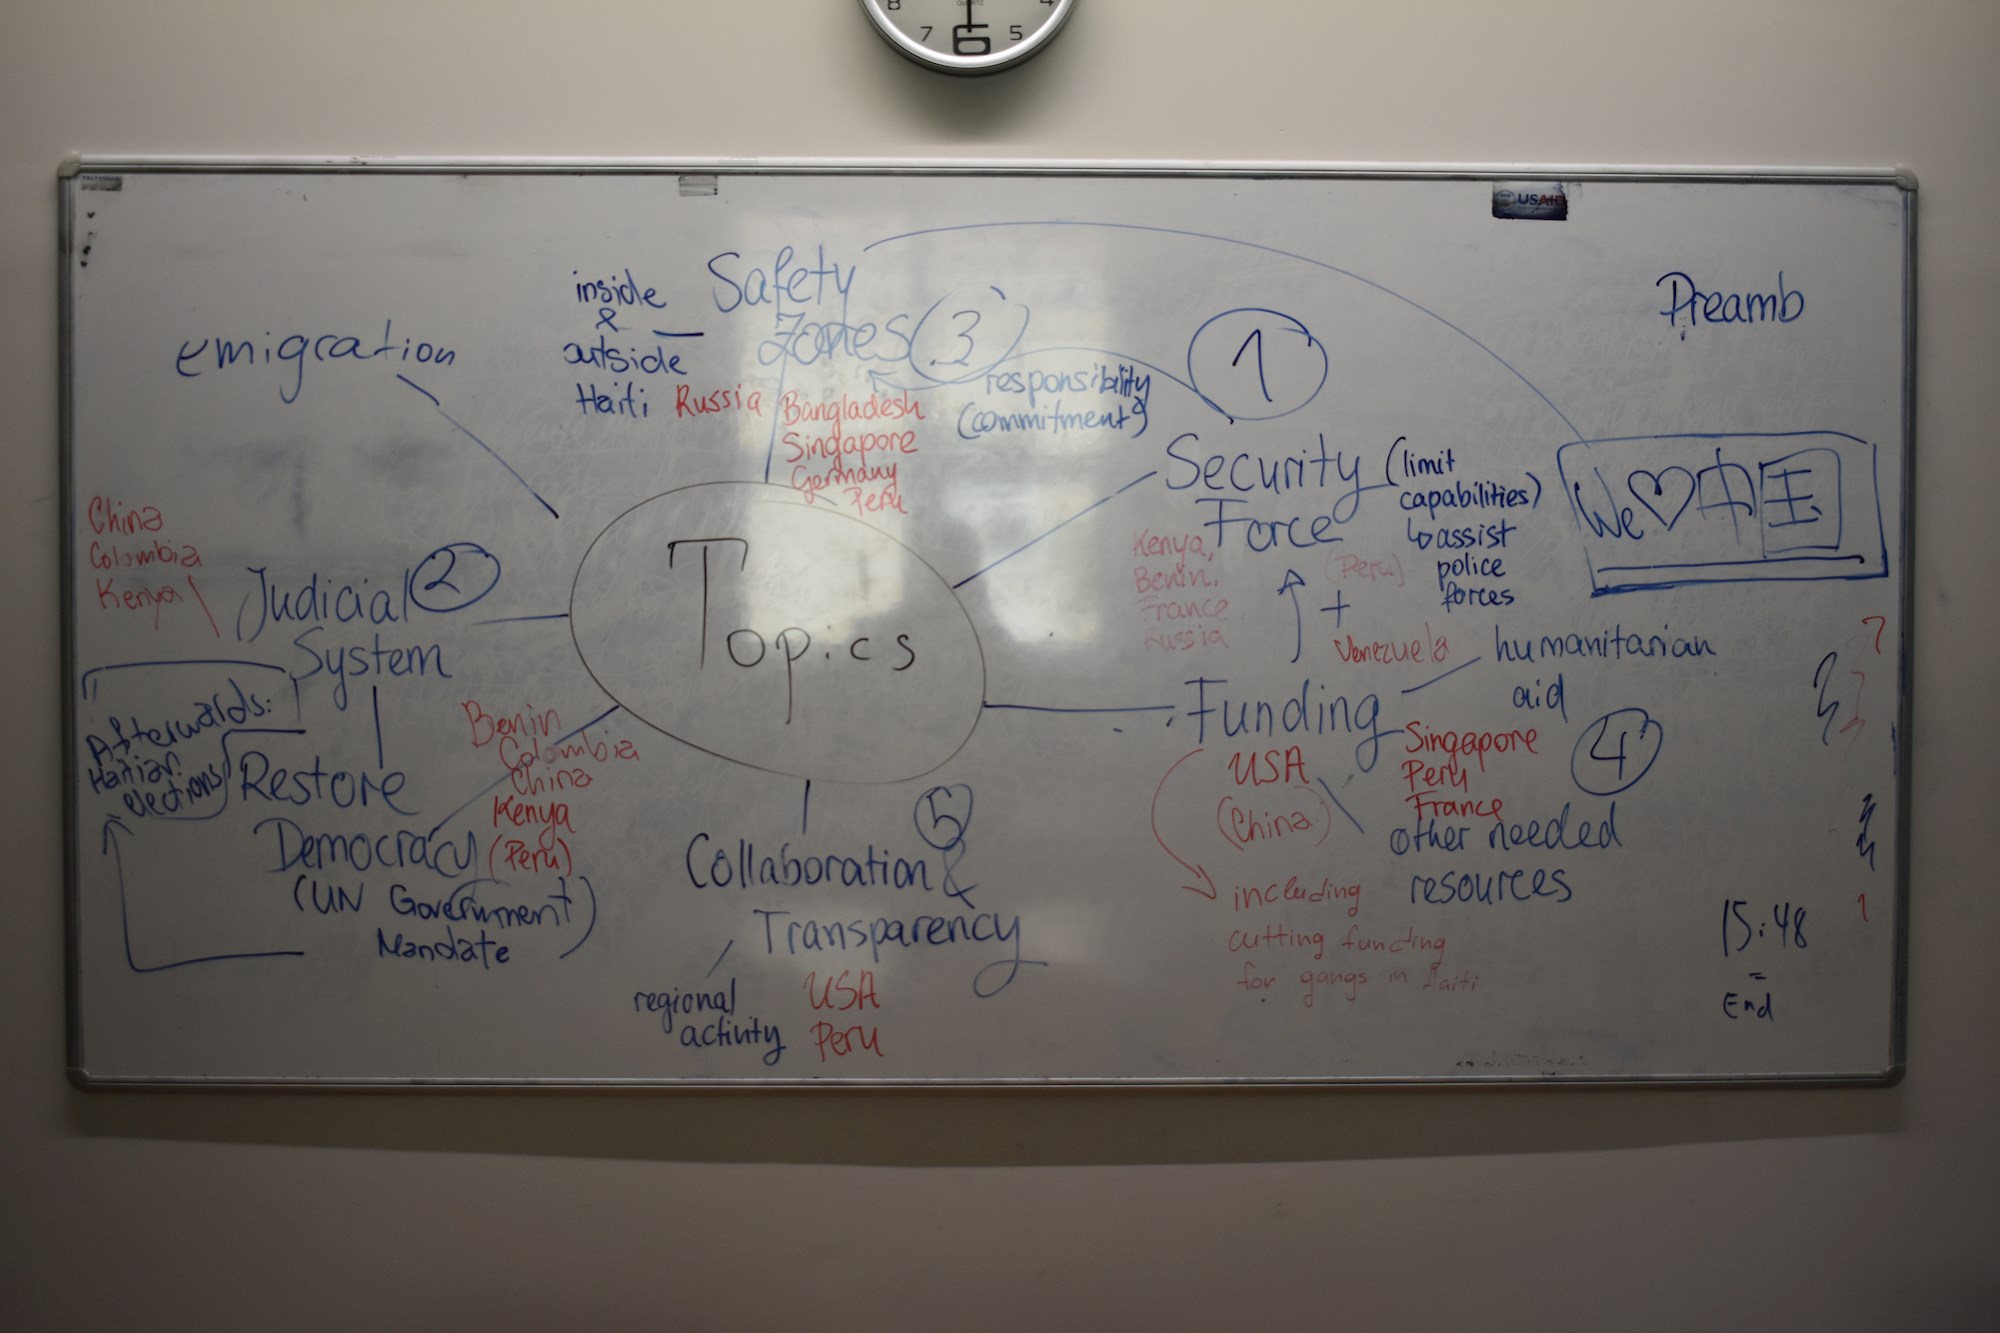 8
4
7
6
5
QUARTZ
USAID
Preamb
emigration
inside
&
outside
Haiti
Safety
Zones (3)
Russia
Bangladesh
Singapore
Germany
Peru
responsibility
(commitment)
1
Security
Force
(limit
capabilities)
↳ assist
police
forces
We ♡ 中国
Kenya,
Benin,
France
Russia
(Peru)
+
Venezuela
China
Colombia
Kenya
Judicial 2
System
Topics
Afterwards:
Haitian
elections
Restore
Democracy
(UN Government
Mandate)
Benin
Colombia
China
Kenya
(Peru)
5
Collaboration &
Transparency
regional
activity
USA
Peru
Funding
humanitarian
aid
4
USA
(China)
Singapore
Peru
France
other needed
resources
including
cutting funding
for gangs in Haiti
15:48
=
End